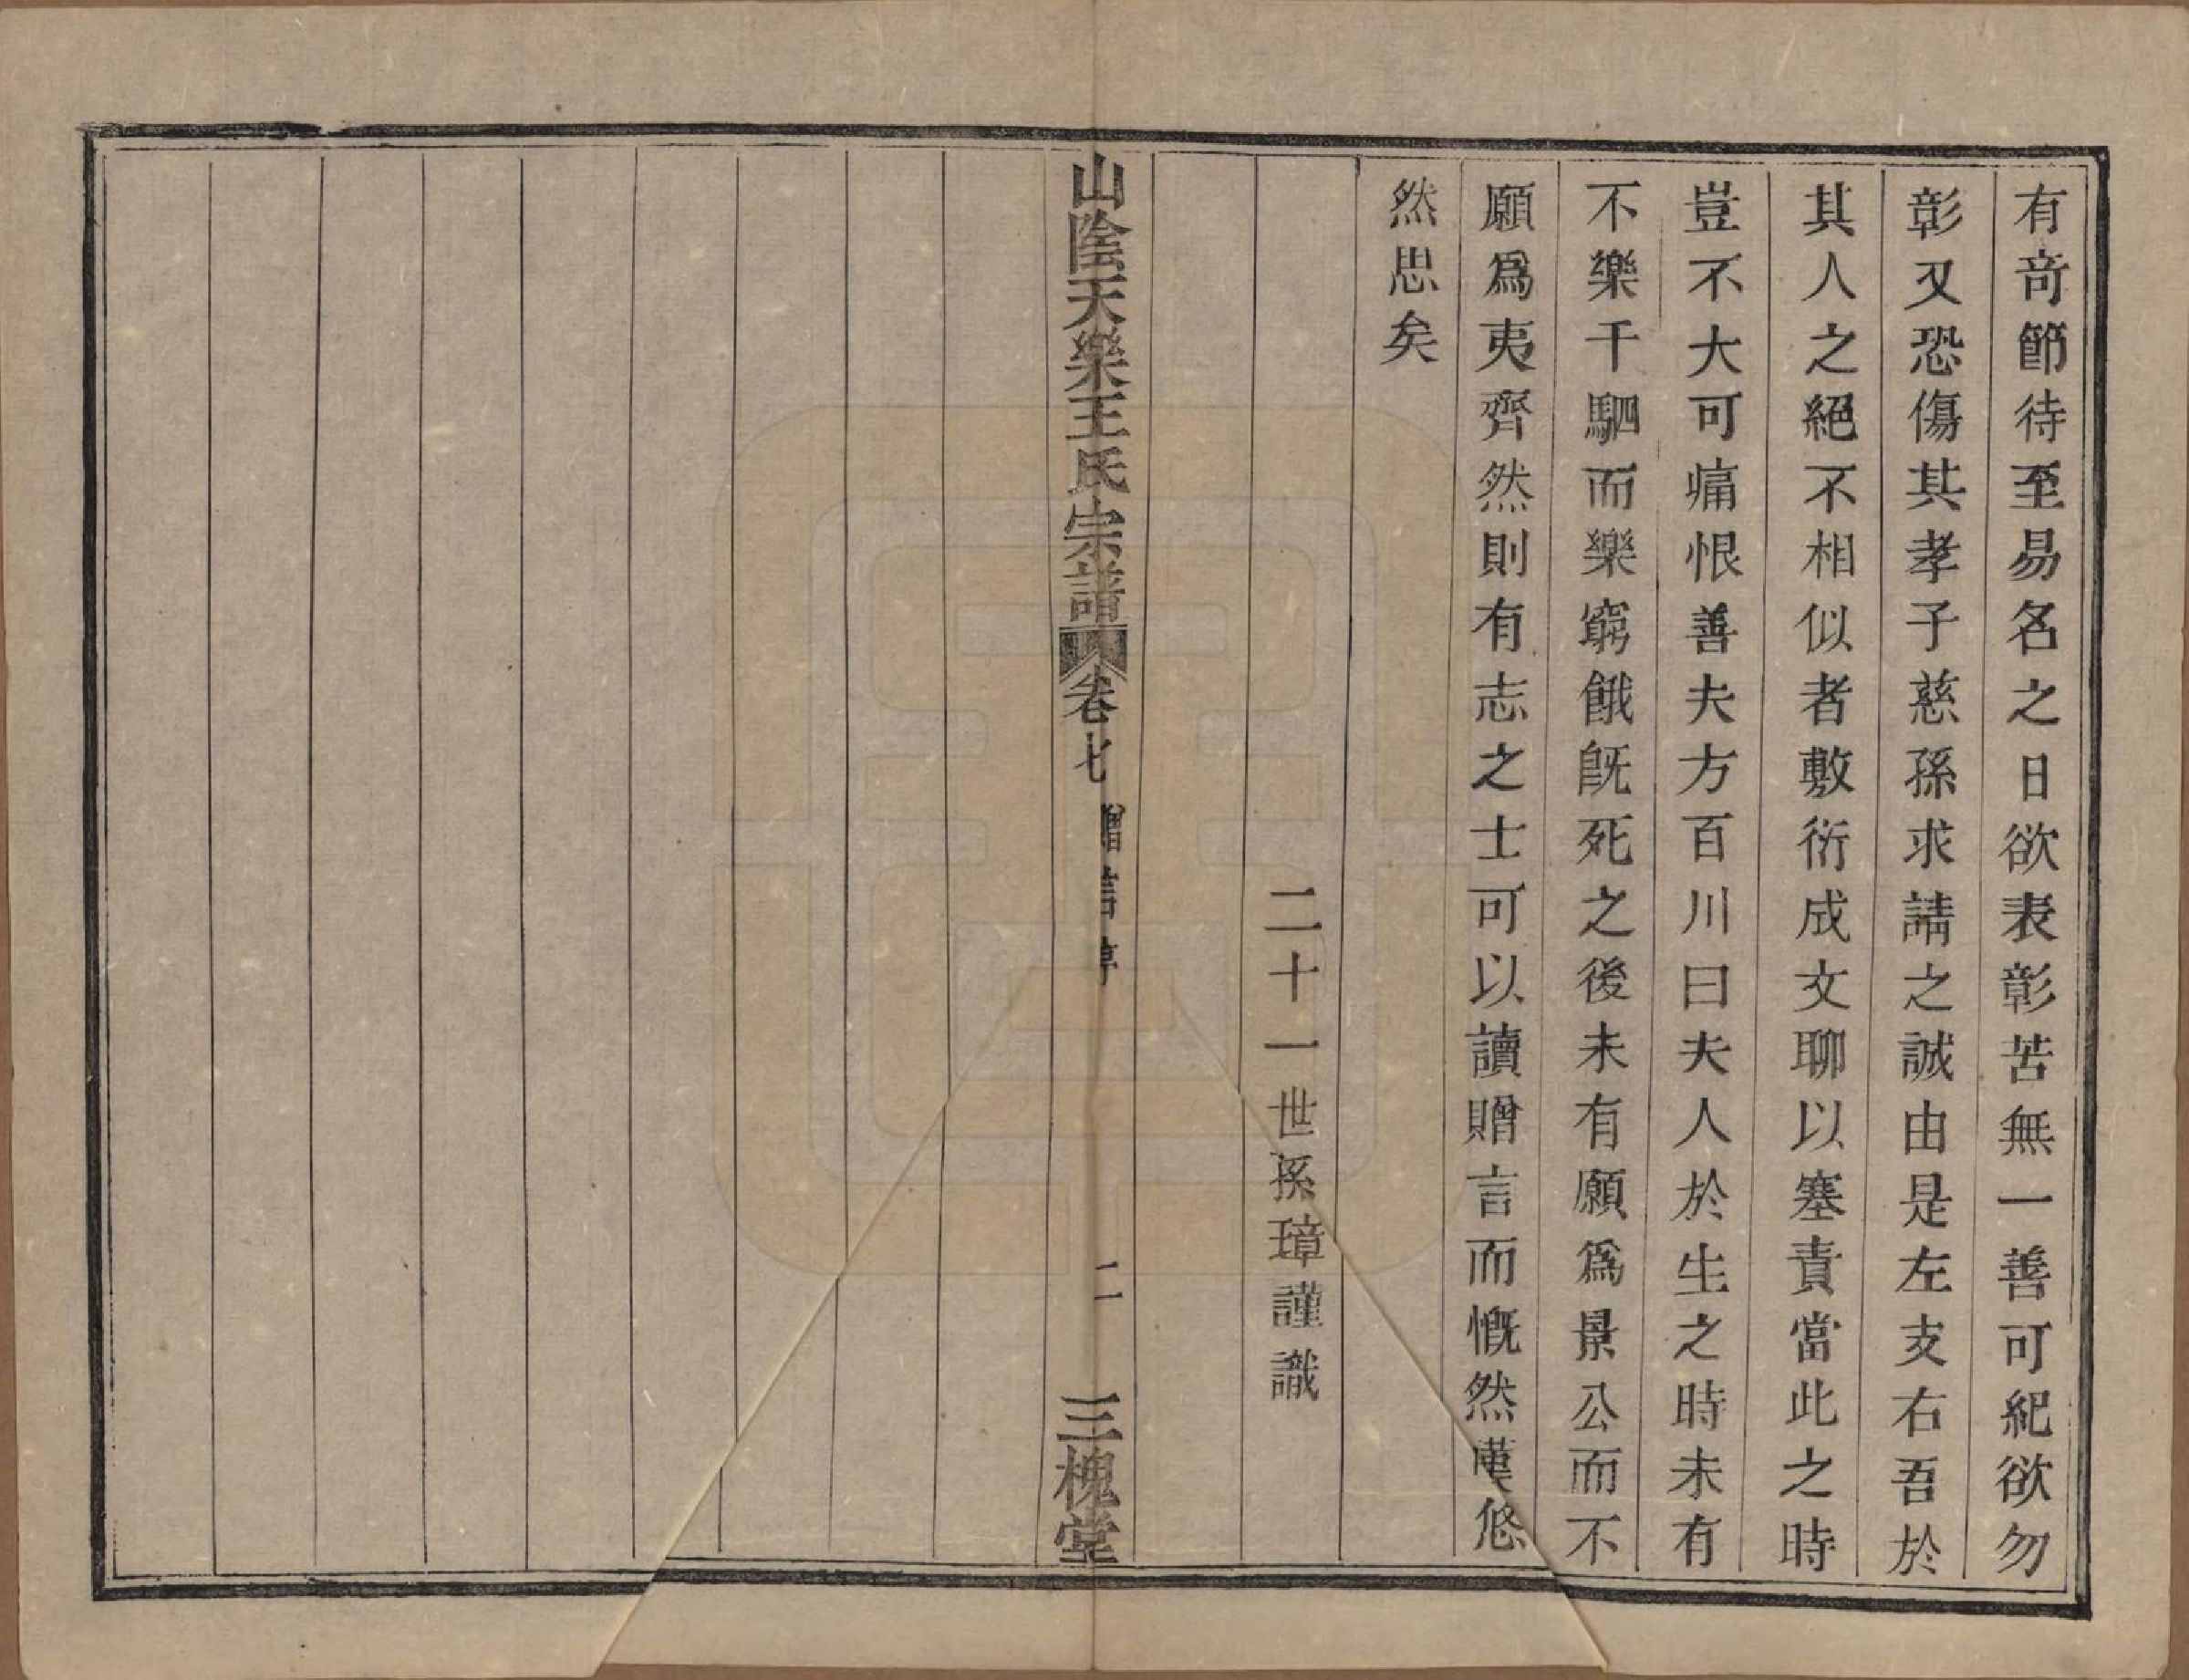 有奇節待至易名之日欲表彰苦無一善可紀欲勿
彰又恐傷其孝子慈孫求請之誠由是左支右吾於
其人之絕不相似者敷衍成文聊以塞責當此之時
豈不大可痛恨善夫方百川曰夫人於生之時未有
不樂千駟而樂窮餓旣死之後未有願爲景公而不
願爲夷齊然則有志之士可以讀贈言而慨然嘆悠
然思矣
二十一世孫璋謹識
山陰天樂王氏宗譜 卷七 贈言 二 三槐堂